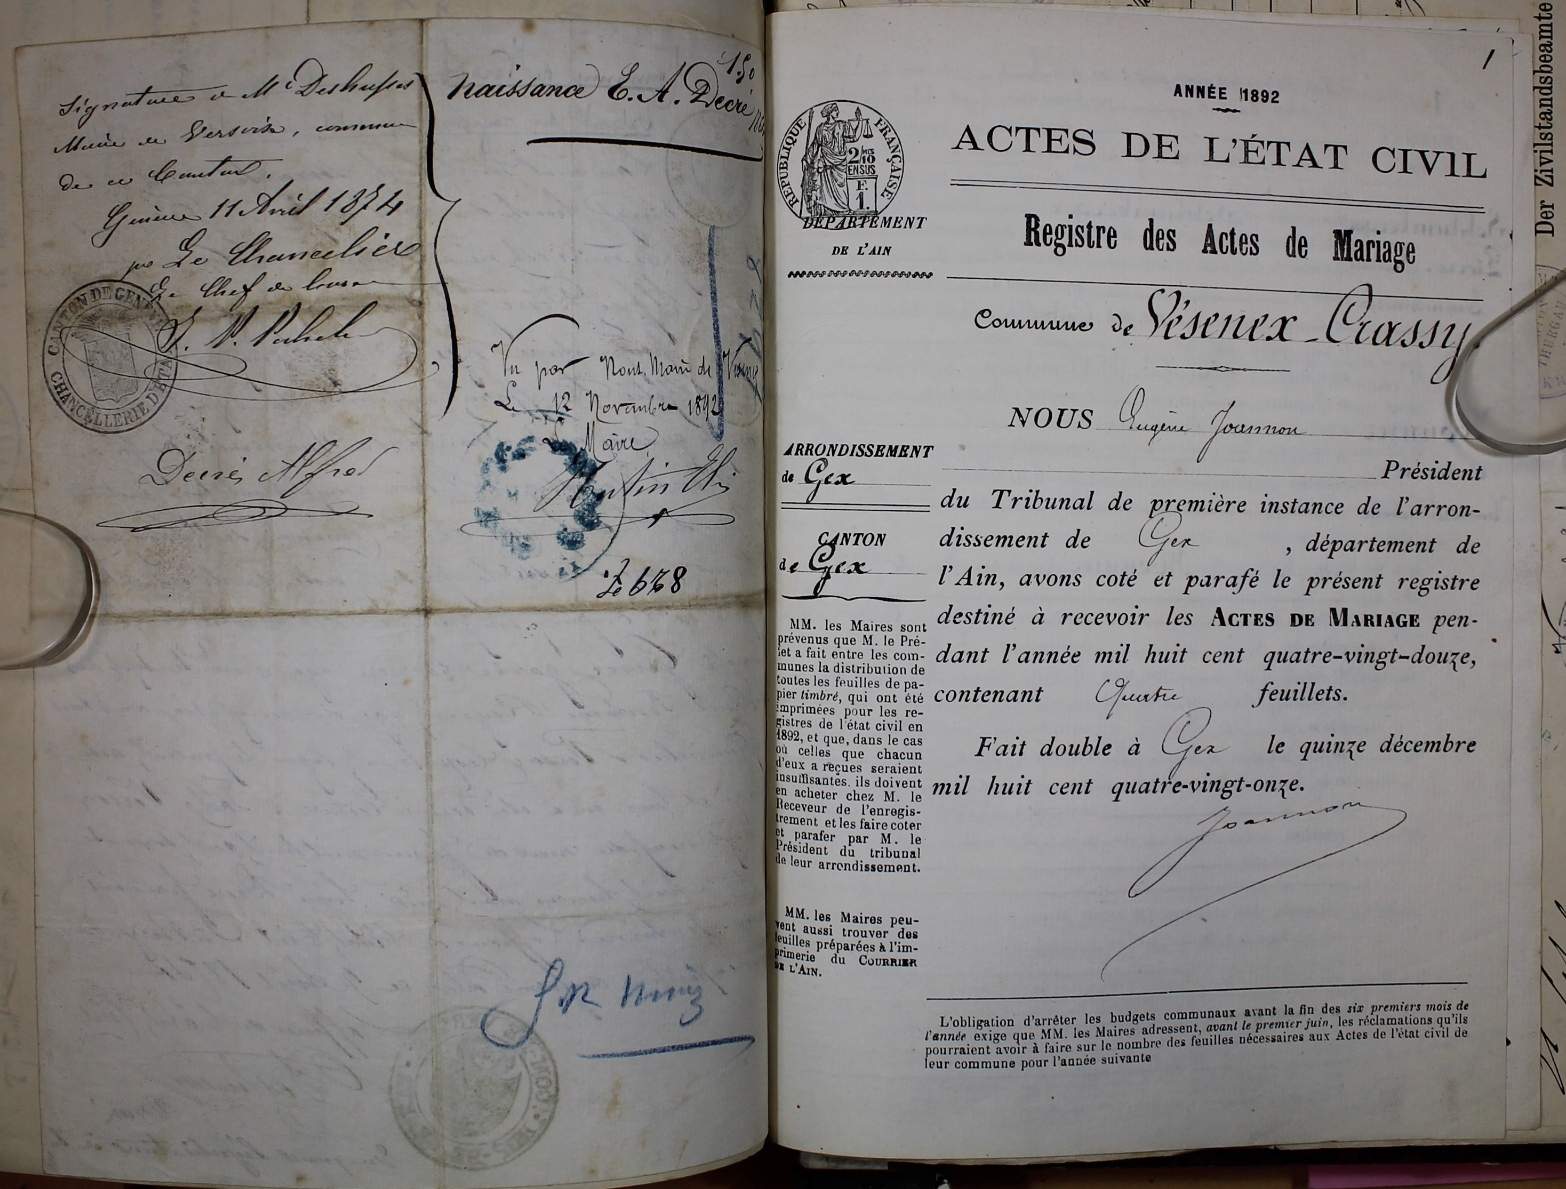 Signature de Mr Deshusses
Maire de Versoix, commune
de ce Canton.
Genève 11 Avril 1874
Le Chancelier
Le Chef de
CANTON DE GENÈVE
CHANCELLERIE D'ÉTAT
Decrés Alfred
1.50
Naissance E. A. Decré
Vu par Nous, Maire de
Le 12 Novembre 1892
Le Maire,
Martin
№ 678
1
ANNÉE 1892
ACTES DE L'ÉTAT CIVIL
RÉPUBLIQUE FRANÇAISE
2/10
EN SUS
F.
1.
DÉPARTEMENT
DE L'AIN
Registre des Actes de Mariage
Commune de Vésenex-Crassy.
NOUS Eugène Joannon
Président
du Tribunal de première instance de l'arron-
dissement de Gex, département de
l'Ain, avons coté et parafé le présent registre
destiné à recevoir les ACTES DE MARIAGE pen-
dant l'année mil huit cent quatre-vingt-douze,
contenant Quatre feuillets.
Fait double à Gex le quinze décembre
mil huit cent quatre-vingt-onze.
Joannon
ARRONDISSEMENT
de Gex
CANTON
de Gex
MM. les Maires sont
prévenus que M. le Pré-
fet a fait entre les com-
munes la distribution de
toutes les feuilles de pa-
pier timbré, qui ont été
imprimées pour les re-
gistres de l'état civil en
1892, et que, dans le cas
où celles que chacun
d'eux a reçues seraient
insuffisantes, ils doivent
en acheter chez M. le
Receveur de l'enregis-
trement et les faire coter
et parafer par M. le
Président du tribunal
de leur arrondissement.
MM. les Maires peu-
vent aussi trouver des
feuilles préparées à l'im-
primerie du COURRIER
DE L'AIN.
L'obligation d'arrêter les budgets communaux avant la fin des six premiers mois de
l'année exige que MM. les Maires adressent, avant le premier juin, les réclamations qu'ils
pourraient avoir à faire sur le nombre des feuilles nécessaires aux Actes de l'état civil de
leur commune pour l'année suivante
Der Zivilstandsbeamte